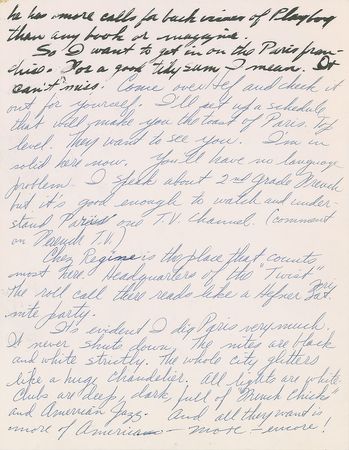 he has more calls for back issues of Playboy
than any book or magazine.
So I want to get in on the Paris fran-
chise. For a good tidy sum, I mean. It
can't miss! Come over Hef and check it
out for yourself. I'll set up a schedule
that will make you the toast of Paris. Top
level. They want to see you. I'm in
solid here now. You'll have no language
problem. I speak about 2nd grade French
but it's good enough to watch and under-
stand Paris' one T.V. Channel (comment
on French T.V.)
Chez Regine is the place that counts
most here. Headquarters of the "Twist"
The roll call there reads like a Hefner Fri, Sat.
nite party.
It's evident I dig Paris very much.
It never shuts down. The nites are black
and white strictly. The whole city glitters
like a huge chandelier. All lights are white.
Clubs are deep, dark, full of "French Chicks"
and American Jazz. And all they want is
more of Americans — more — encore!